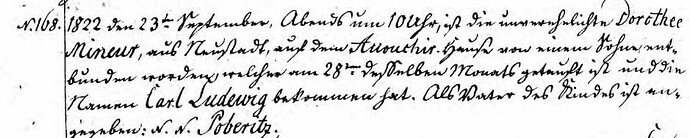 N. 168. 1822 den 23ten September, Abends um 10 Uhr, ist die unverehelichte Dorothee
Mineur, aus Neustadt, auf dem Accouchir-Hause von einem Sohne ent-
bunden worden, welcher am 28ten desselben Monats getauft ist und die
Namen Carl Ludewig bekommen hat. Als Vater des Kindes ist an-
gegeben: N. N. Poberitz.